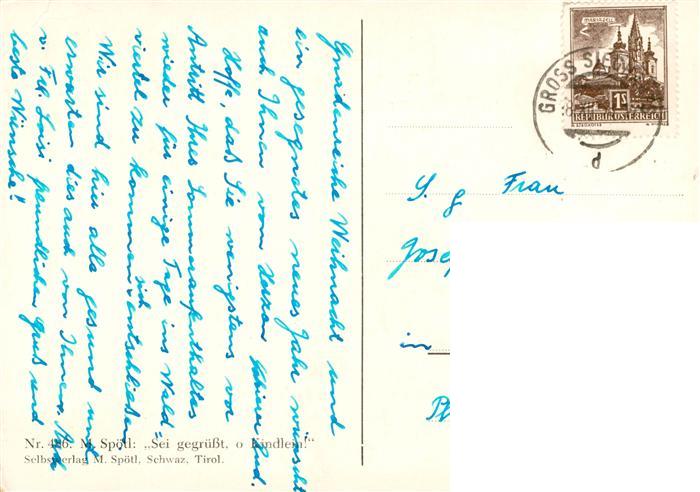 Gnadenreiche Weihnacht und
ein gesegnetes neues Jahr wünscht
auch Ihnen vom Herzen
Hoffe, daß Sie wenigstens vor
Antritt Ihres Sommeraufenthaltes
wieder für einige Tage ins Wald=
viertel zu kommen sich entschließen
Wir sind hier alle gesund und
erwarten dies auch von Ihnen. Auch
v. Frl. Luisi freundlichen Gruß und
beste Wünsche!
Nr. 486. M. Spötl: „Sei gegrüßt, o Kindlein!"
Selbstverlag M. Spötl, Schwaz, Tirol.
MARIAZELL
1S
REPUBLIK ÖSTERREICH
GROSS SIE
d
S. g. Frau
Josef
in